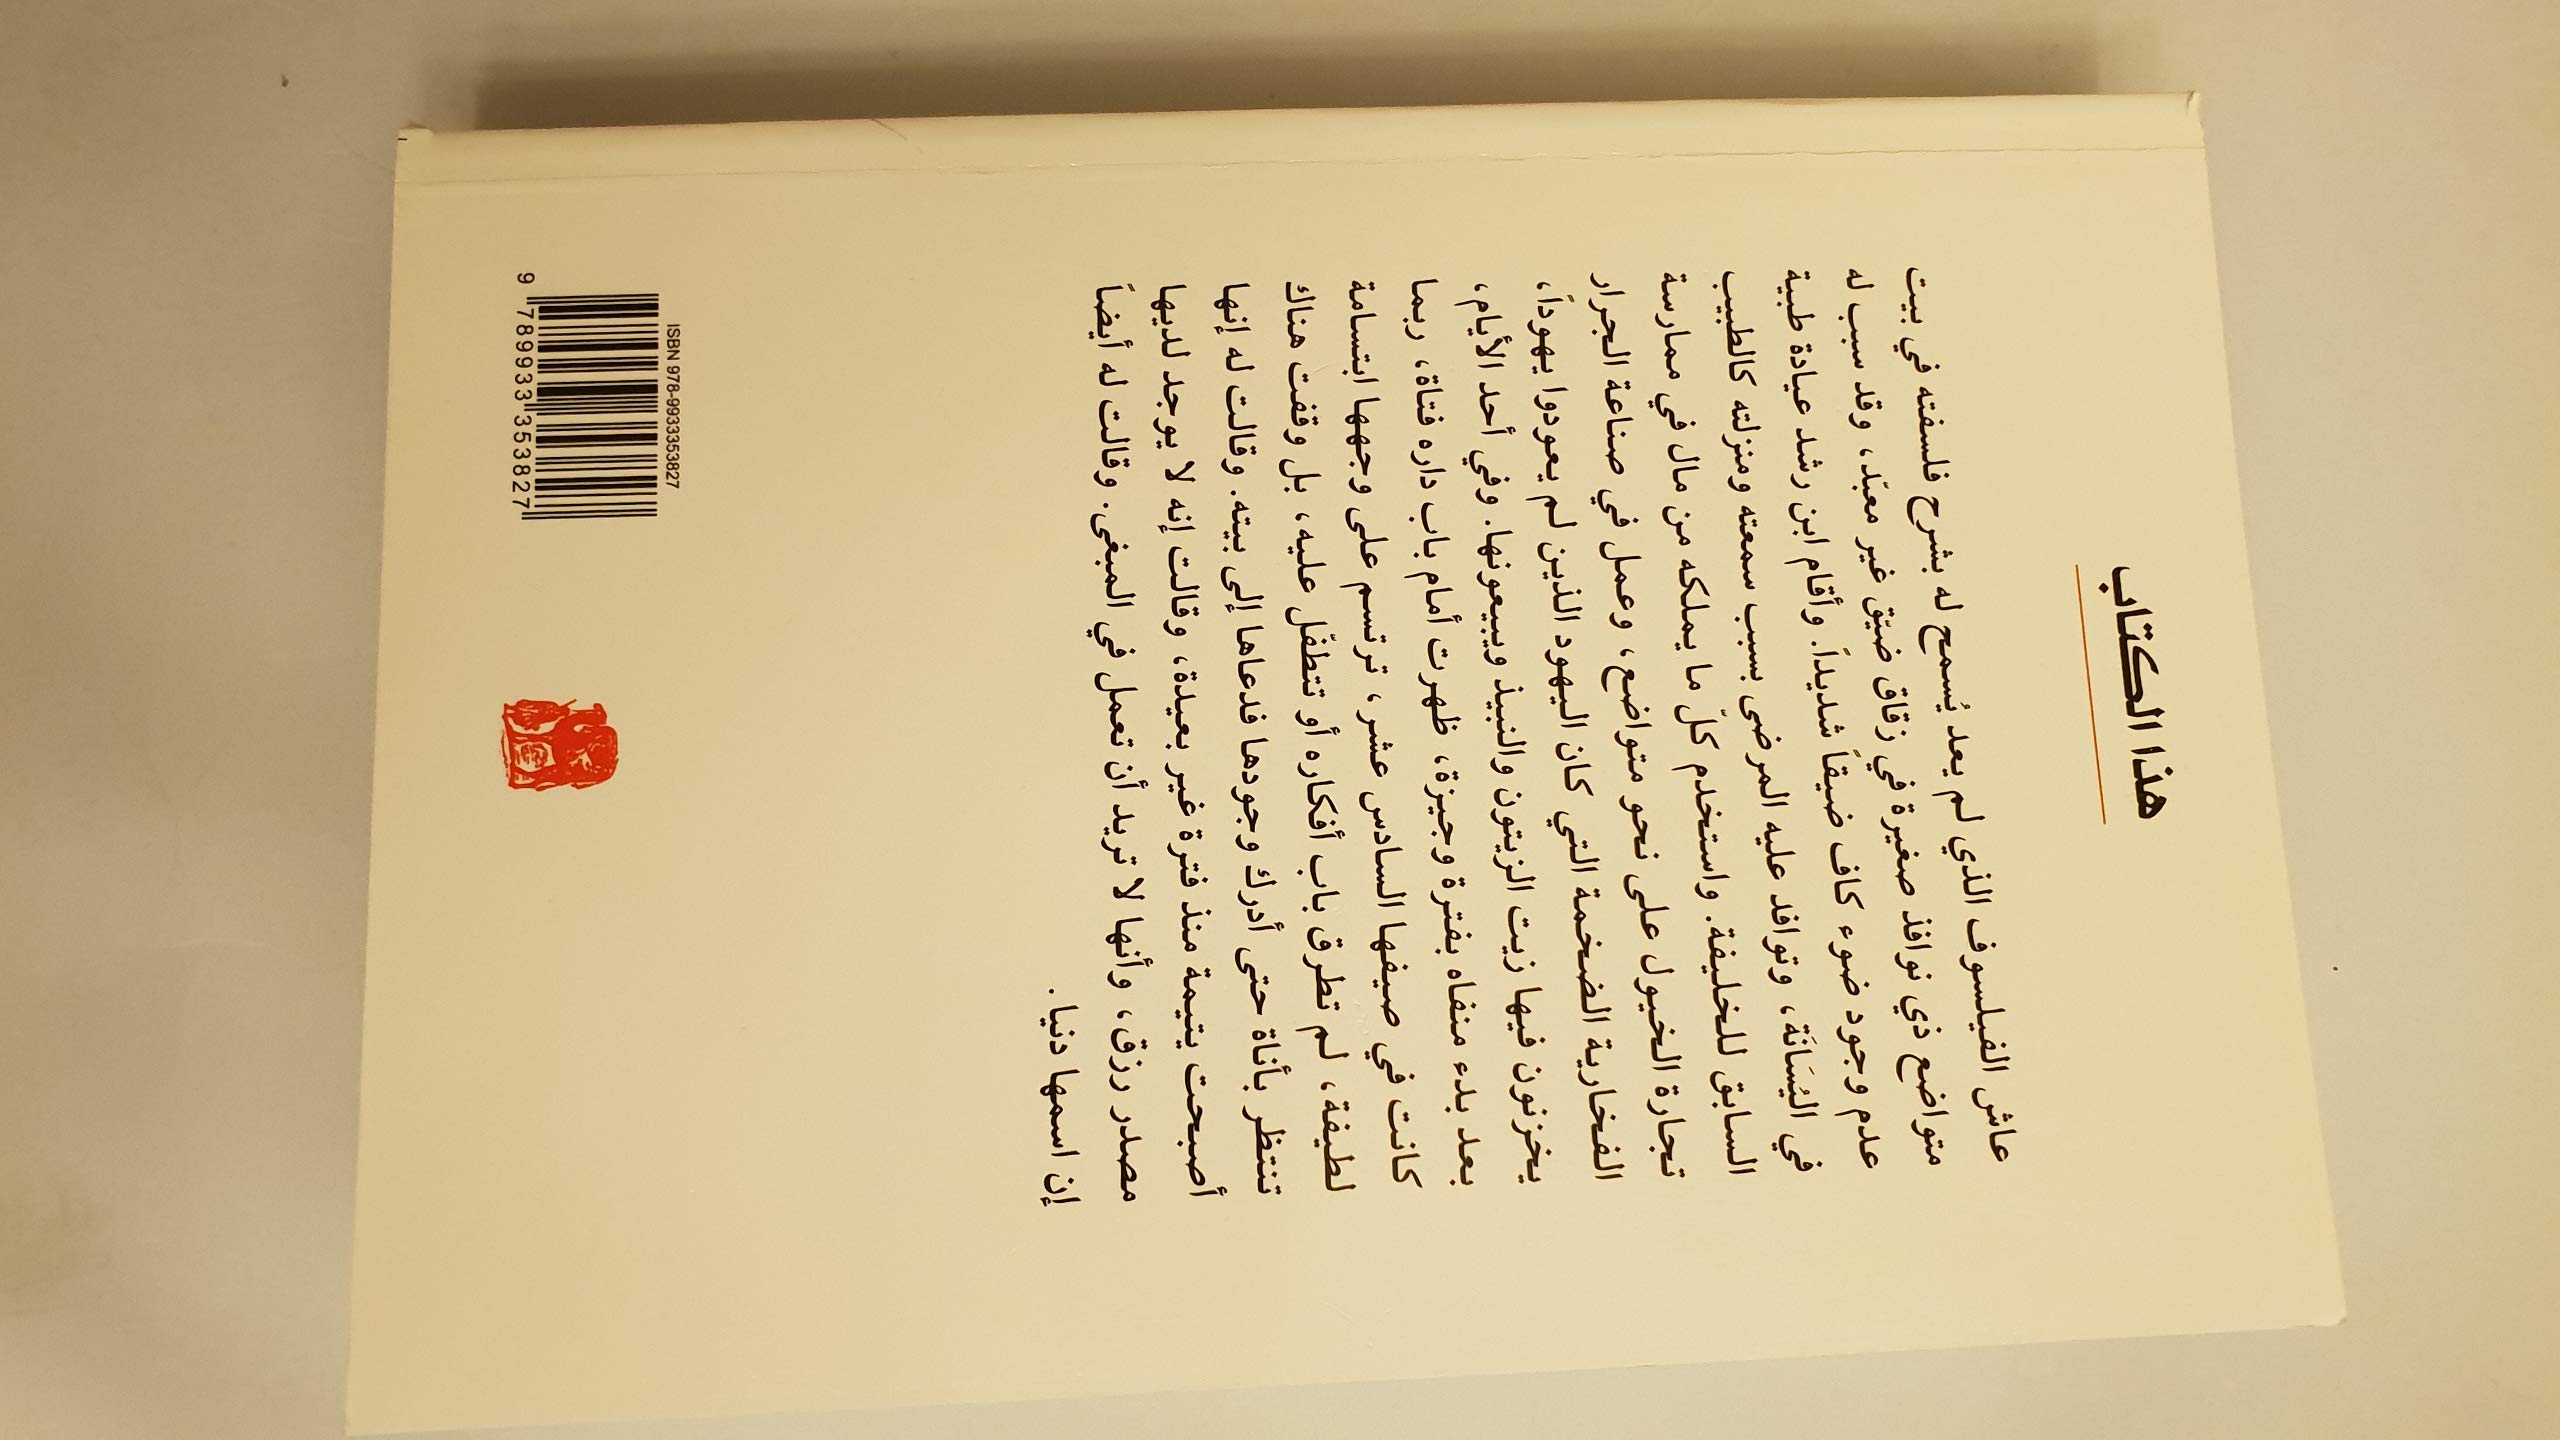 هذا الكتاب
عاش الفيلسوف الذي لم يعد يُسمح له بشرح فلسفته في بيت
متواضع ذي نوافذ صغيرة في زقاق ضيّق غير معبّد، وقد سبب له
عدم وجود ضوء كاف ضيقاً شديداً. وأقام ابن رشد عيادة طبية
في اليُسَانَة، وتوافد عليه المرضى بسبب سمعته ومنزلته كالطبيب
السابق للخليفة. واستخدم كلّ ما يملكه من مال في ممارسة
تجارة الخيول على نحو متواضع، وعمل في صناعة الجرار
الفخارية الضخمة التي كان اليهود الذين لم يعودوا يهوداً،
يخزنون فيها زيت الزيتون والنبيذ ويبيعونها. وفي أحد الأيام،
بعد بدء منفاه بفترة وجيزة، ظهرت أمام باب داره فتاة، ربما
كانت في صيفها السادس عشر، ترتسم على وجهها ابتسامة
لطيفة، لم تطرق باب أفكاره أو تتطفّل عليه، بل وقفت هناك
تنتظر بأناة حتى أدرك وجودها فدعاها إلى بيته. وقالت له إنها
أصبحت يتيمة منذ فترة غير بعيدة، وقالت إنه لا يوجد لديها
مصدر رزق، وأنها لا تريد أن تعمل في المبغى. وقالت له أيضاً
إن اسمها دنيا.
ISBN 978-9933353827
9 789933 353827